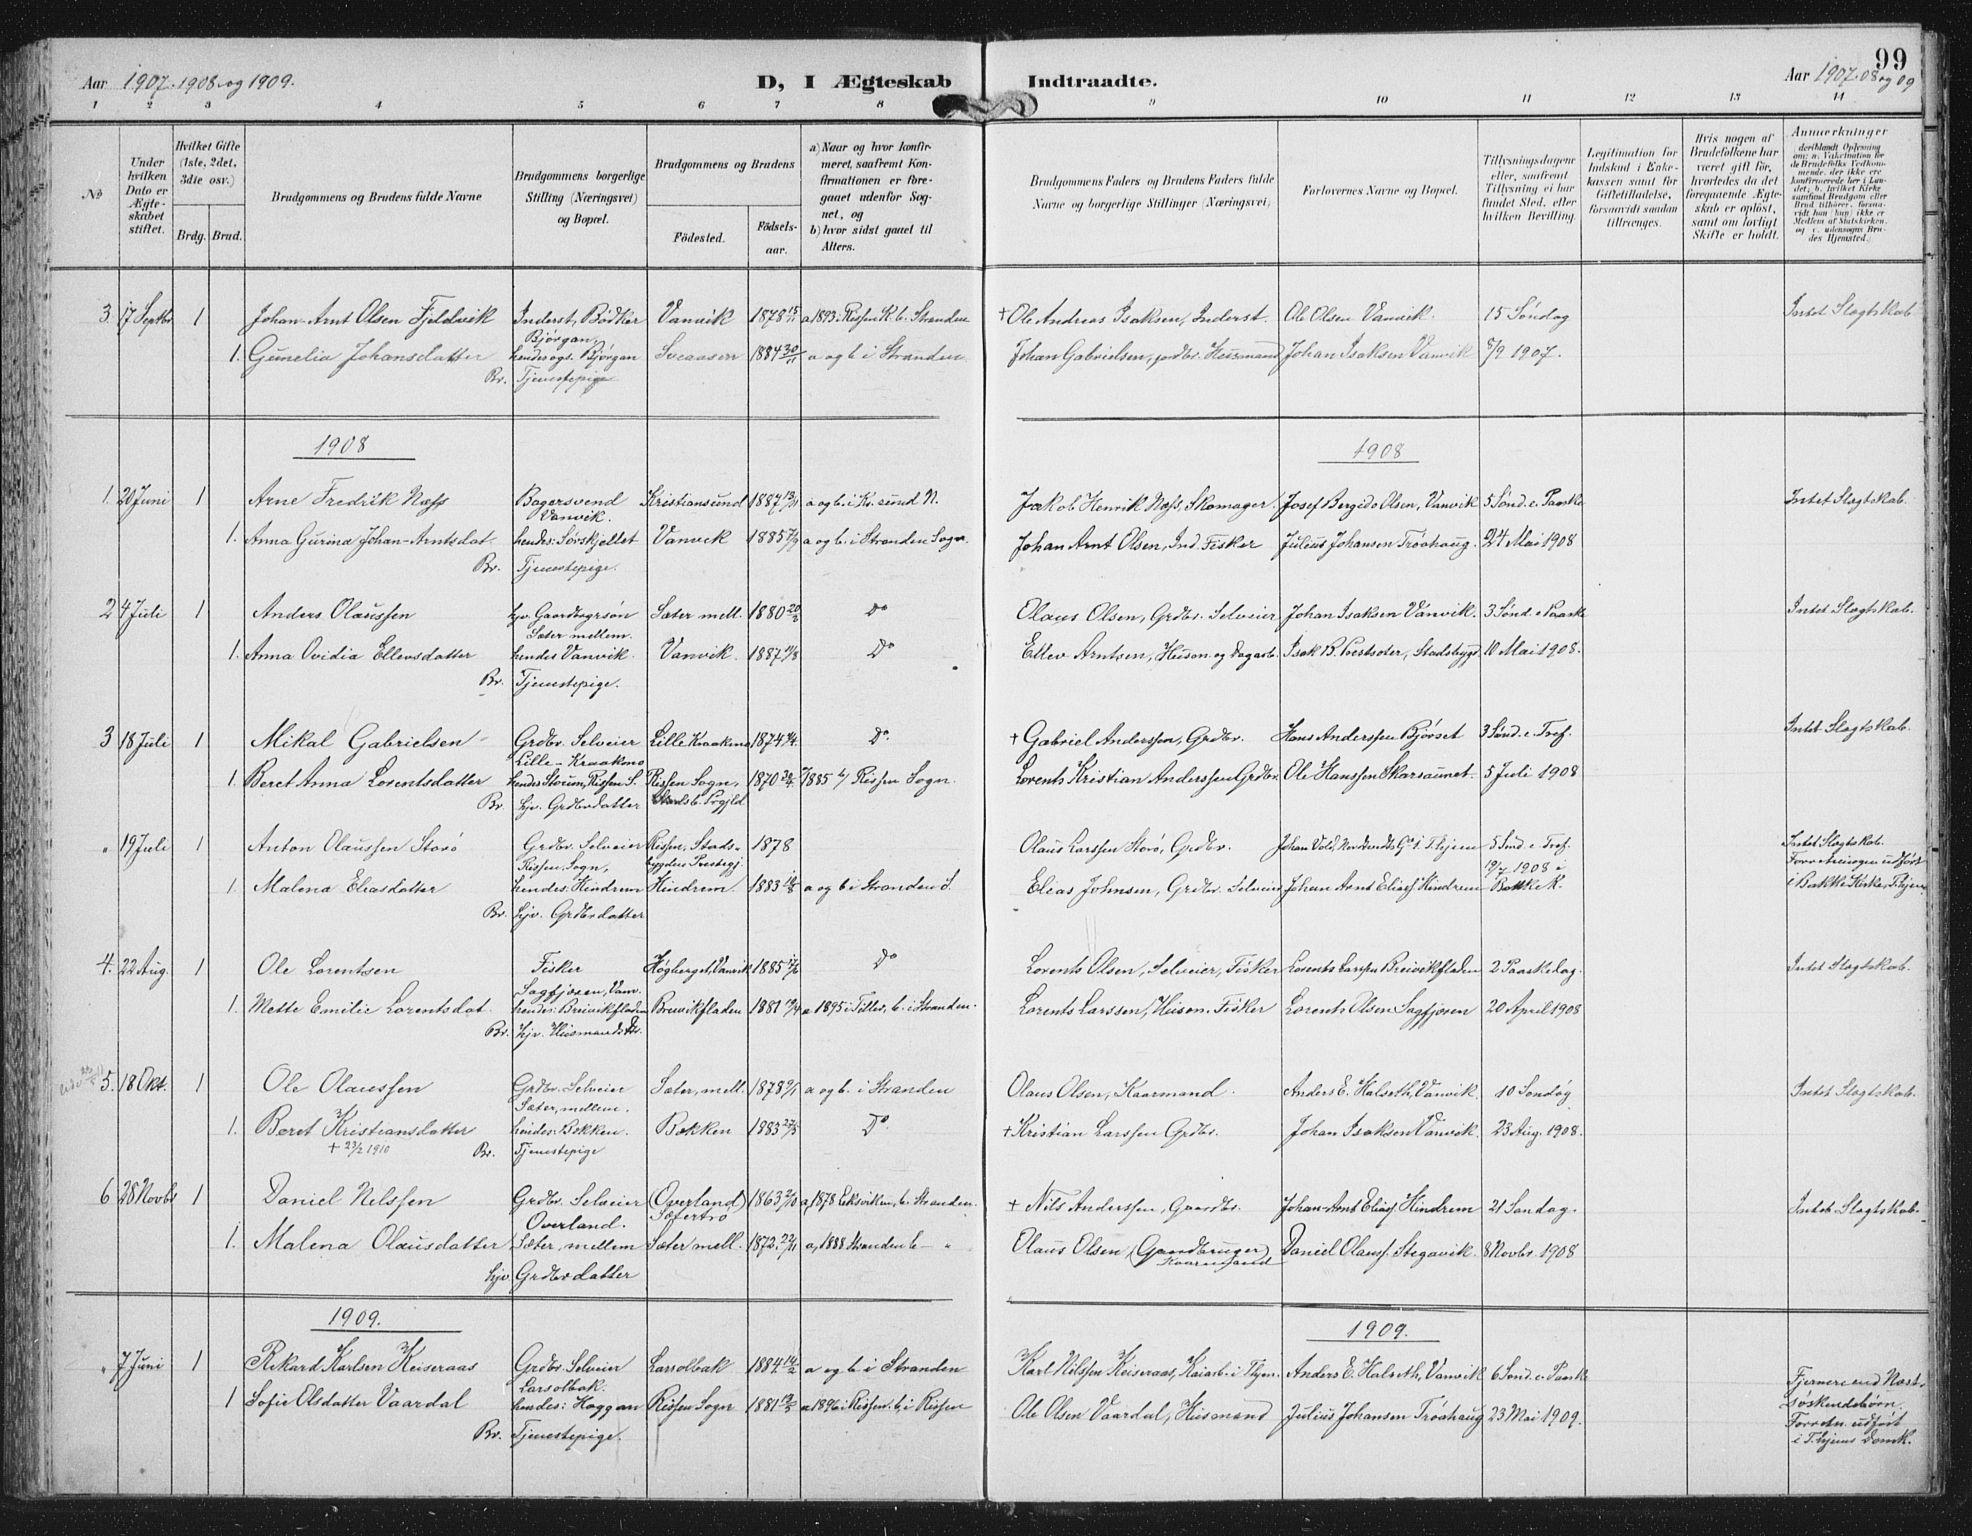 99
Aar 1907. 1908 og 1909.
D, I Ægteskab
Indtraadte.
Aar 1907. 08 og 09
1 2 3 4 5 6 7 8 9 10 11 12 13 14
No
Under hvilken Dato er Ægteskabet stiftet.
Hvilket Gifte (1ste, 2det, 3die osv.)
Brdg. Brud.
Brudgommens og Brudens fulde Navne
Brudgommens borgerlige Stilling (Næringsvei) og Bopæl.
Brudgommens og Brudens
Fødested.
Fødsels-aar.
a) Naar og hvor konfir-
meret, saafremt Kon-
firmationen er fore-
gaaet udenfor Sog-
net, og
b) hvor sidst gaaet til
Alters.
Brudgommens Faders og Brudens Faders fulde
Navne og borgerlige Stillinger (Næringsvei)
Forlovernes Navne og Bopæl.
Tillysningsdagene
eller, saafremt
Tillysning ei har
fundet Sted, efter
hvilken Bevilling.
Legitimation for
Indskud i Enke-
kassen samt for
Giftetilladelse,
forsaavidt saadan
tiltrænges.
Hvis nogen af
Brudefolkene har
været gift før,
hvorledes da det
foregaaende Ægte-
skab er opløst,
samt om lovligt
Skifte er holdt.
Anmærkninger
3. 17 Septbr 1 Johan Arnt Olsen Fjeldvik Inderst, Bødker Vanvik 1878 15/11 a 1893 i Rissen K. b. Stranden + Ole Andreas Isaksen, Inderst. Ole Olsen Vanvik. 15 Søndag Intet Slægtskab.
Bjørgan,
1. Gunelia Johansdatter hendes ogs. Bjørgan Sveaasen 1884 30/11 a og b i Stranden Johan Gabrielsen, jordbr. Husmand Johan Isaksen Vanvik 8/9 1907.
Br. Tjenestepige
1908
1908
1. 20 Juni 1 Arne Fredrik Næss Bagersvend Kristiansund 1887 13/11 a og b. i Kr.sund N. Jakob Henrik Næss, Skomager Josef Bergido Olsen, Vanvik 5 Sønd. e. Paaske Intet Slægtskab.
Vanvik.
1. Anna Gurina Johan-Arntsdat. hendes: Sørskjellet Vanvik 1885 7/9 a og b. i Stranden Sogn. Johan Arnt Olsen, Ind. Fisker Julius Johansen Trøahaug. 24 Mai 1908
Br. Tjenestepige.
2 4 Juli 1 Anders Olaussen hjv. Gaardbrgrsøn Sæter mell. 1880 20/2 Do Olaus Olsen, Grdbr. Selveier Johan Isaksen Vanvik. 3 Sønd. e Paaske Intet Slægtskab.
Sæter mellem.
1. Anna Ovidia Ellevsdatter hendes Vanvik. Vanvik. 1887 Do Ellev Arntsen, Husm. og Dagarb. 10 Mai 1908.
Br. Tjenestepige.
3 18 Juli 1 Mikal Gabrielsen Grdbr. Selveier Lille Kraakmo 1874 Do. + Gabriel Anderssen, Grdbr. Hans Anderssen Bjørset 3 Sønd. e. Tref. Intet Slægtskab.
Lille-Kraakmo
1. Beret Anna Lorentsdatter hendes Storum, Rissen S. Rissen Sogn, 1870 1885 b/ Rissen Sogn. Lorents Kristian Anderssen Grdbr. Ole Hanssen Skarsaunet. 5 Juli 1908
Br. hjv. Grdbrdatter Stadsb. Prgjld
" 19 Juli 1 Anton Olaussen Storø Grdbr. Selveier Rissen, Stads- 1878 Olaus Larssen Storø, Grdbr. 5 Sønd. e. Tref. Intet Slægtskab.
Rissen Sogn, bygden Prestegj. 19/7 1908 i Forretningen udført
1. Malena Eliasdatter hendes: Hindrem Hindrem. 1883 a og b i Stranden S. Elias Johnsen, Grdbr. Selveier Johan Arnt Eliass Hindrem Bakke K. i Bakke Kirke, Thjem
Br. hjv. Grdbrdatter
4. 22 Aug. 1 Ole Lorentsen Fisker Høgberget, Vanvik 1885 Do Lorents Olsen, Selveier, Fisker Lorents Larssen Breivikfladen 2 Paaskedag. Intet Slægtskab.
Sagfjæren, Vanv.
1. Mette Emilie Lorentsdat. hendes: Breivikfladen Breivikfladen 1881 a 1895 i b. i Stranden. Lorents Larssen, Husm. Fisker Lorents Olsen Sagfjæren 20 April 1908
Br. hjv. Husmandsdtr.
5. 18 Okt. 1 Ole Olaussen Grdbr. Selveier Sæter, mell. 1878 a og b. i Stranden Olaus Olsen, Kaarmand. Anders E. Halseth, Vanvik. 10 Søndag Intet Slægtskab.
Sæter, mellem.
1. Beret Kristiansdatter hendes: Bakken. Bakken 1883 Do + Kristian Larssen Grdbr. Johan Isaksen Vanvik. 23 Aug. 1908.
+ 23/2 1910 Br. Tjenestepige
6 28 Novbr 1 Daniel Nilssen Grdbr. Selveier (Overland) 1863 a, 1878 b. Stranden + Nils Anderssen, Gaardbr. Johan-Arnt Eliass. Hindrem 21 Søndag. Intet Slægtskab.
Overland.
1. Malena Olausdatter Sæter, mellem Sæter mell. 1872 22/11 a, 1888 Stranden b — " Olaus Olsen (Gaardbruger) Daniel Olauss. Stegavik. 8 Novbr. 1908
hjv Grdbrdatter Kaarmand
1909.
1909.
" 7 Juni 1 Rikard Karlsen Keiseraas Grdbr. Selveier Larsolbak 1884 14/2 a og b i Stranden Karl Nilssen Keiseraas, i Thjem. Anders E. Halseth, Vanvik 6 Sønd. e Paaske Fjernere end Næst-
Larsolbak. Søskendebørn.
1 Sofie Olsdatter Vaardal hendes: Hoggan Rissen Sogn 1881 a 1896 i Rissen. b, i Rissen Ole Olsen Vaardal, Husmand Julius Johansen Trøahaug 23 Mai 1909. Forretn. udført
Br. Tjenestepige. i Thjems Domk.